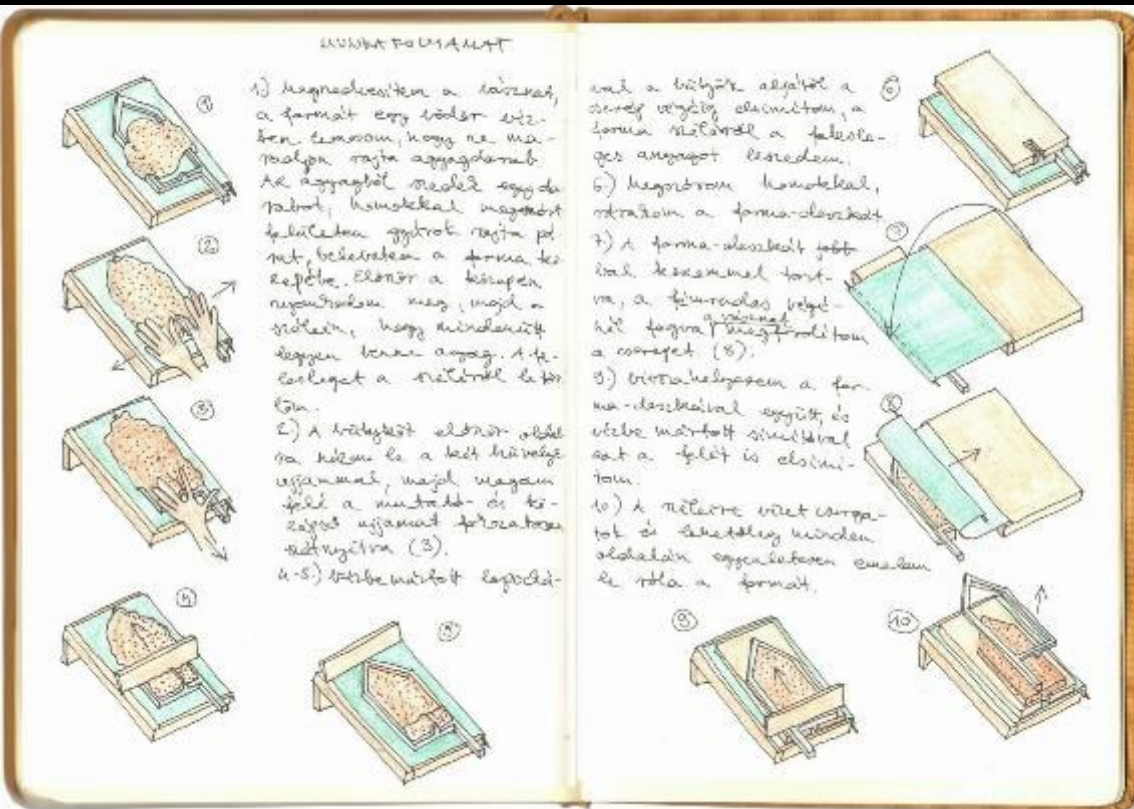 MUNKAFOLYAMAT
1.) Megnedvesítem a vásznat,
a formát egy vödör víz-
ben lemosom, hogy ne ma-
radjon rajta agyagdarab.
Az agyagból szedek egy da
rabot, homokkal megszórt
felületen gyúrok rajta pá
rat, beleteszem a forma kö
zepébe. Először a közepén
nyomkodom meg, majd a
szélein, hogy mindenütt
legyen benne anyag. A fe-
lesleget a széléről letör
löm.
2.) A bütyköt először oldal
ra húzom le a két hüvelyk
ujjammal, majd magam
felé a mutató- és kö-
zépső ujjamat fokozatosan
szétnyitva (3).
4-5.) Vízbe mártott lapocká-
val a bütyök aljától a
cserép végéig elsimítom, a
forma széléről a felesle-
ges anyagot leszedem.
6.) Megszórom homokkal,
a forma-deszkát
7.) A forma-deszkát jobb
bal kezemmel tart-
va, a fémrudas végé-
nél fogva a vásznat megfordítom
a cserepet (8).
9.) Visszahelyezem a for-
ma-deszkával együtt, és
vízbe mártott simítóval
ezt a felét is elsimí-
tom.
10.) A széleire vizet csorga-
tok és lehetőleg minden
oldalán egyenletesen emelem
le róla a formát.
1
2
3
4
5
6
7
8
9
10